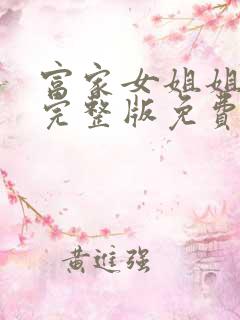 富家女姐姐
完整版免费
黄进强